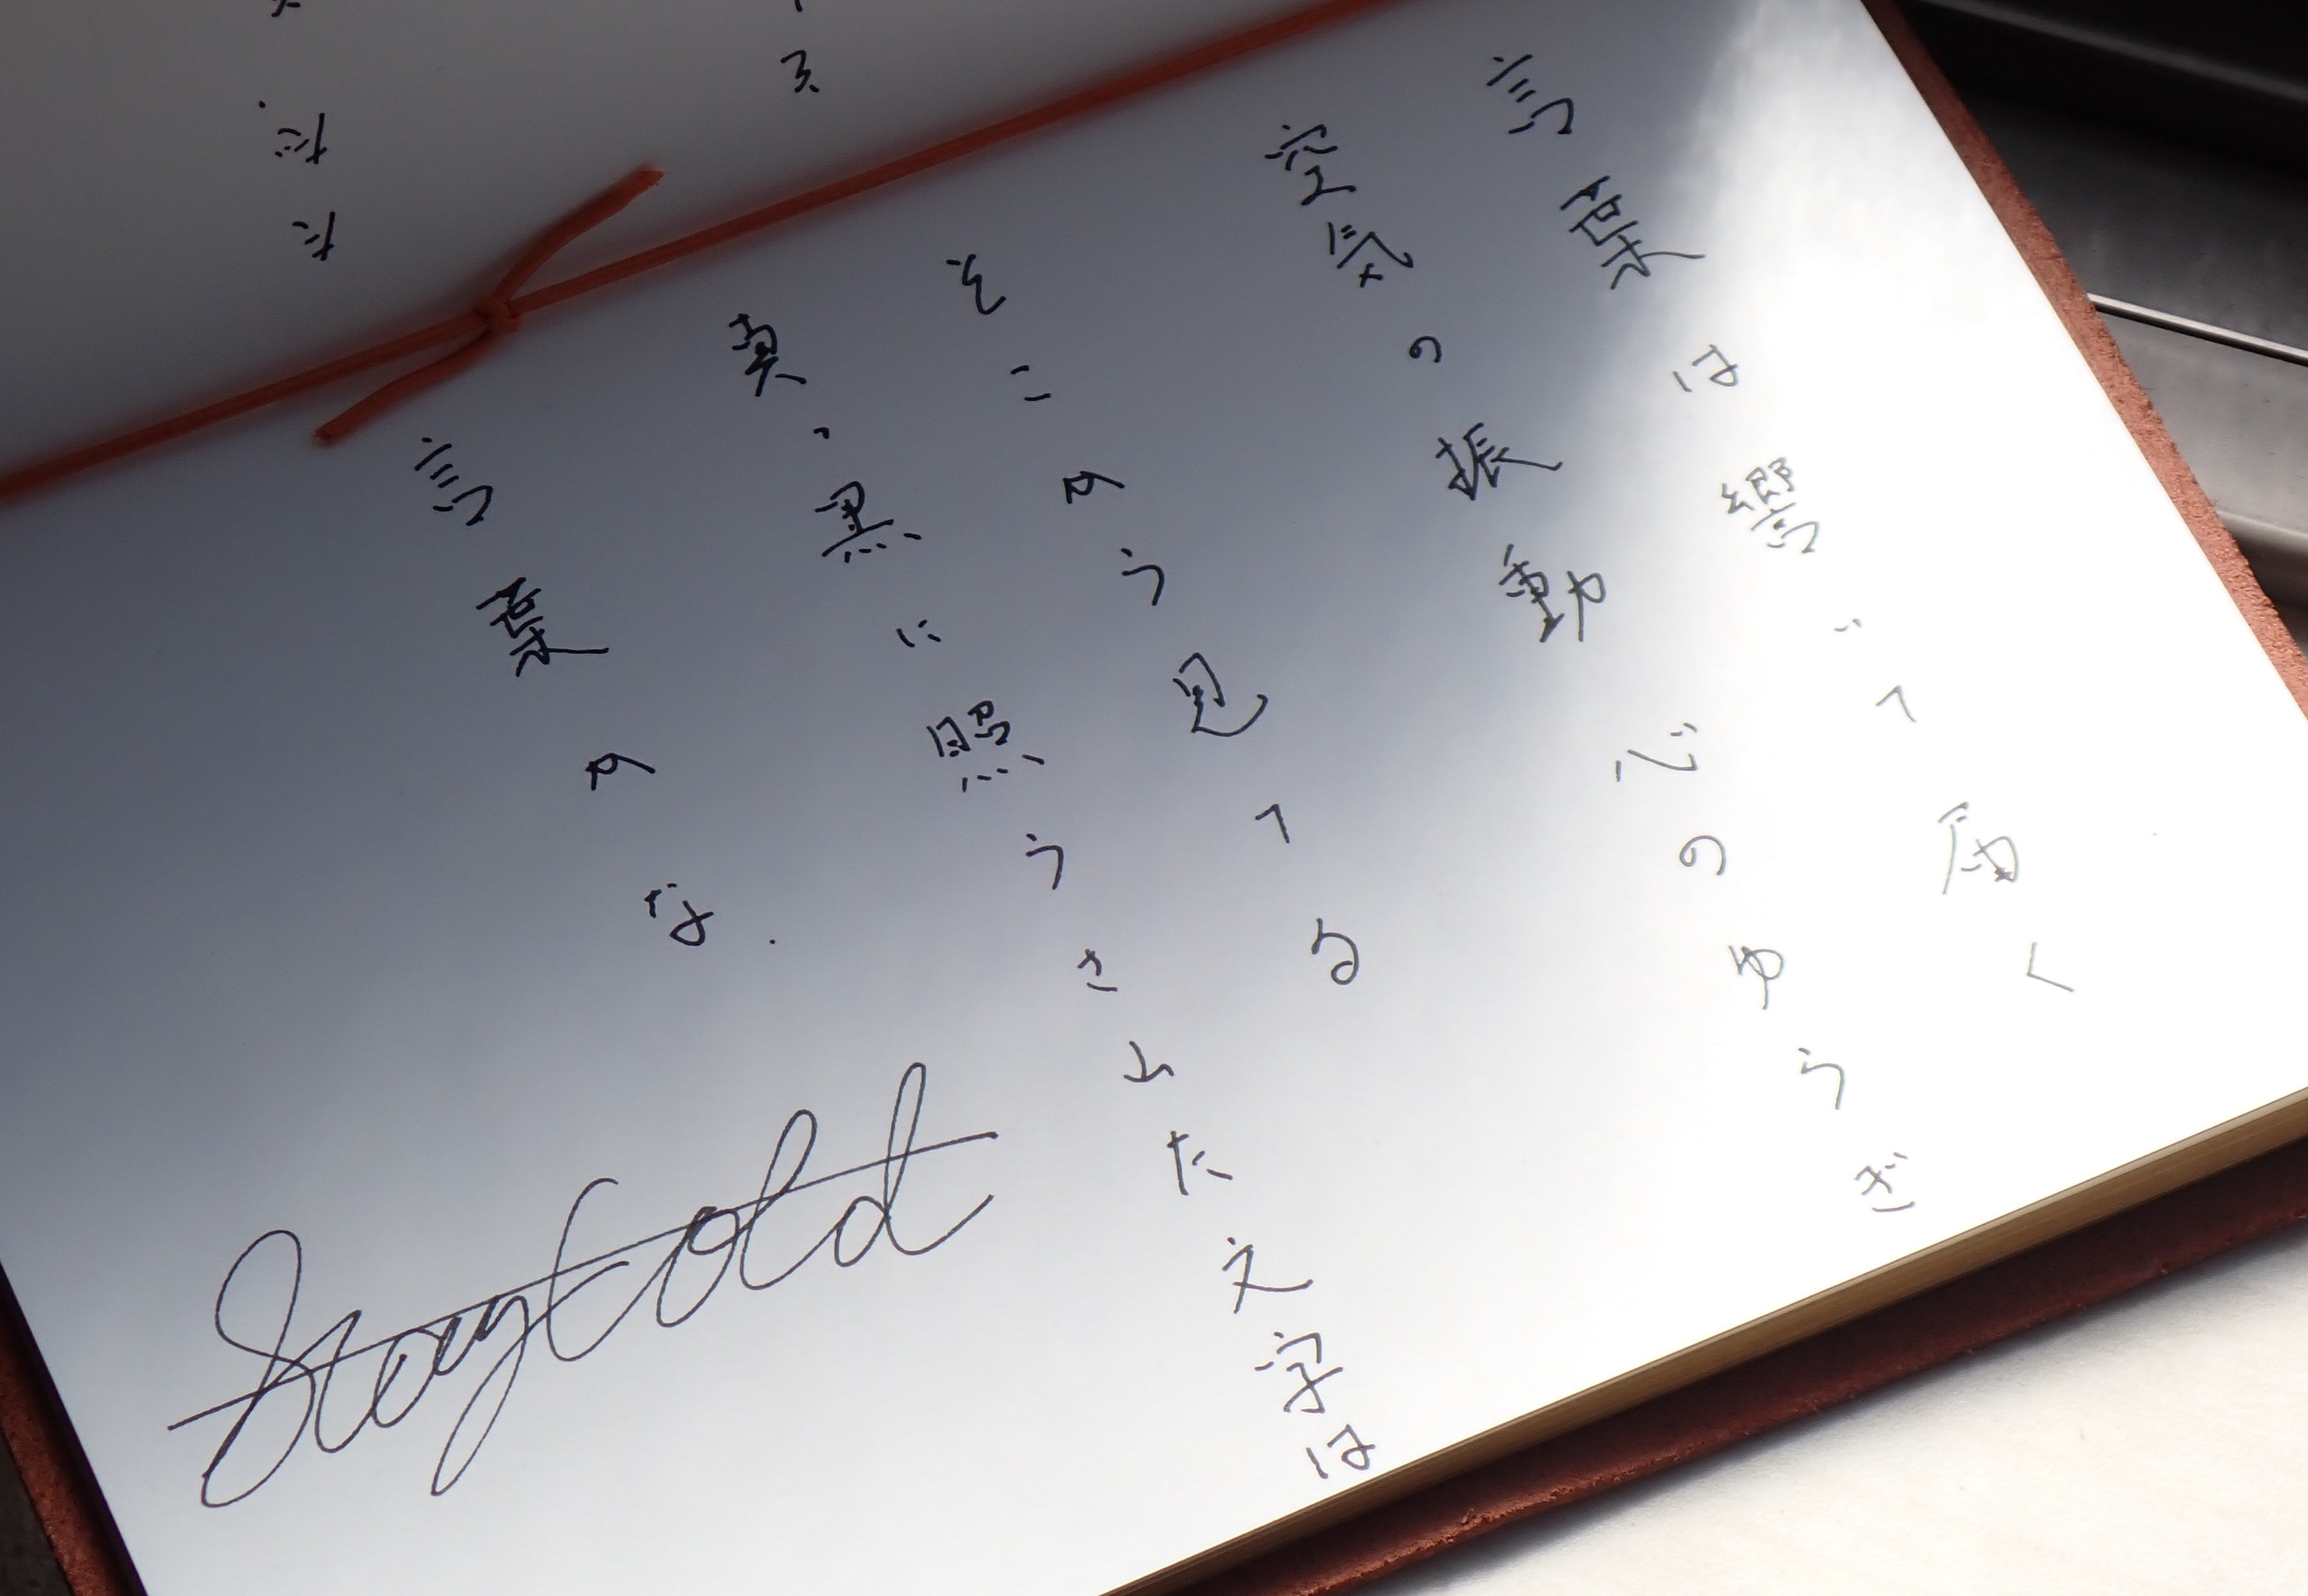 言葉は響いて届く
空気の振動 心のゆらぎ
そこから見てる
真っ黒に照らされた文字は
言葉かな.
StayGold